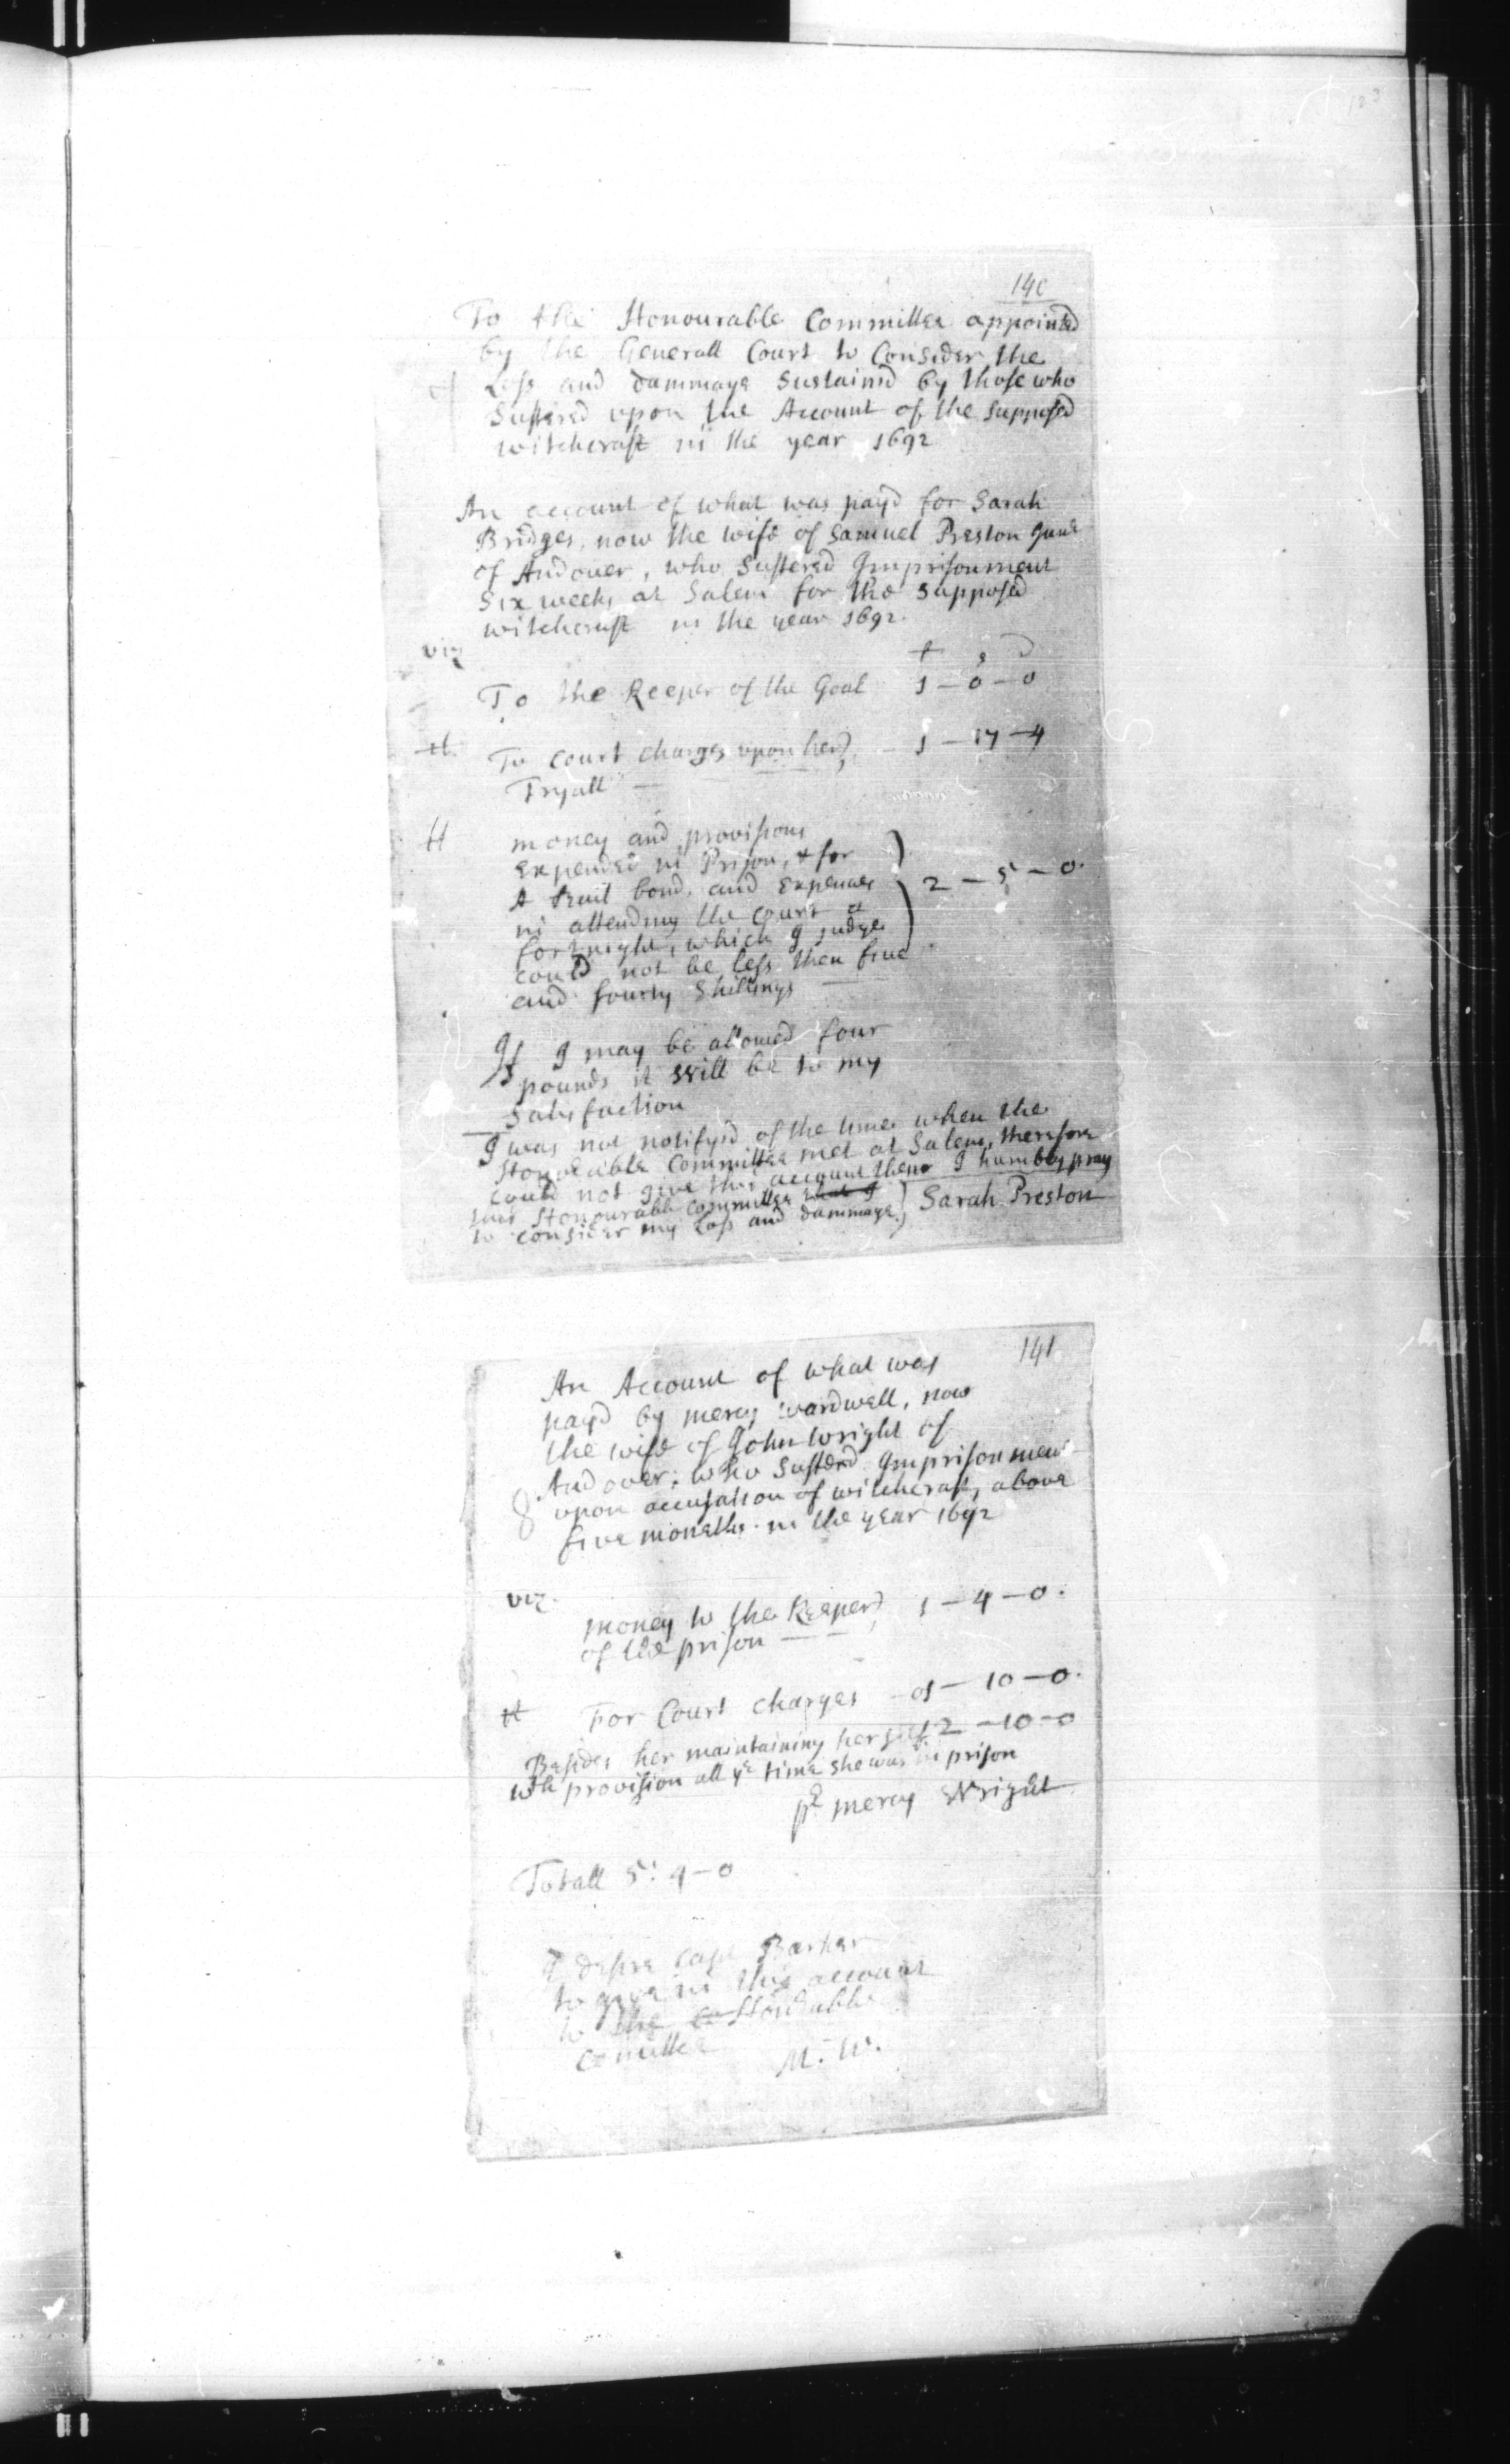 123
140
To the Honourable Committee appointed
by the Generall Court to Consider the
Loss and dammage Sustained by those who
Suffered upon the Account of the Supposed
witchcraft in the year 1692
An account of what was payd for Sarah
Bridges, now the wife of Samuel Preston Junr
of Andover, who Suffered Imprisonment
Six weeks at Salem for the Supposed
witchcraft in the year 1692.
viz
£ s d
To the Keeper of the Goal 1 – 0 – 0
It To Court charges upon her 1 – 17 – 4
Tryall —
It money and provisions
Expended in Prison, & for
A bond, and Expences
in attending the Court a
fortnight, which I judge
could not be less then five
and fourty Shillings 2 – 5 – 0.
If I may be allowed four
pounds it will be to my
Satisfaction
I was not notifyed of the time when the
Honorable Committee met at Salem, therefore
could not give this account then I humbly pray
this Honourable Committee that I
to consider my loss and dammage Sarah Preston
141
An Account of what was
payd by mercy wardwell, now
the wife of John wright of
Andover; who Sufferd Imprisonment
upon accusation of witchcraft, above
five moneths. in the year 1692
viz.
money to the Keeper 1 – 4 – 0.
of the prison — —
It For Court charges – 01 – 10 – 0.
Besides her maintaining herself 2 – 10 – 0
wth provision all ye time she was in prison
pr mercy Wright
Totall 5: 4 – 0
I desire Capt Barker
to give in this account
to the Honrable
Comittee
M: W.